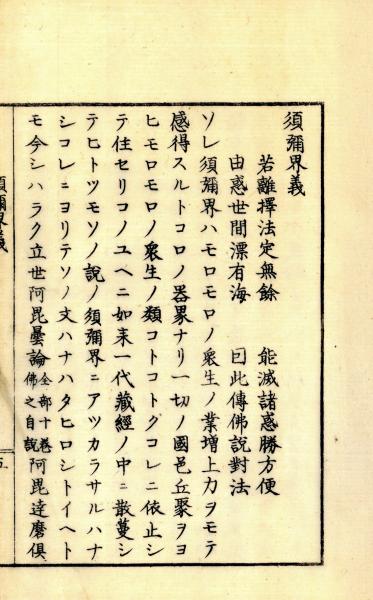 須彌界義
若離擇法定無餘　能滅諸惑勝方便
由惑世間漂有海　因此傳佛說對法
ソレ須彌界ハモロモロノ衆生ノ業增上力ヲモテ
感得スルトコロノ器界ナリ一切ノ國邑丘聚ヲヨ
ヒモロモロノ衆生ノ類コトコトクコレニ依止シ
テ住セリコノユヘニ如来一代藏經ノ中ニ散蔓シ
テヒトツモソノ說ノ須彌界ニアツカラサルハナ
シコレニヨリテソノ文ハナハタヒロシトイヘト
モ今シハラク立世阿毘曇論全部十卷佛之自說阿毘達磨俱
須彌界義